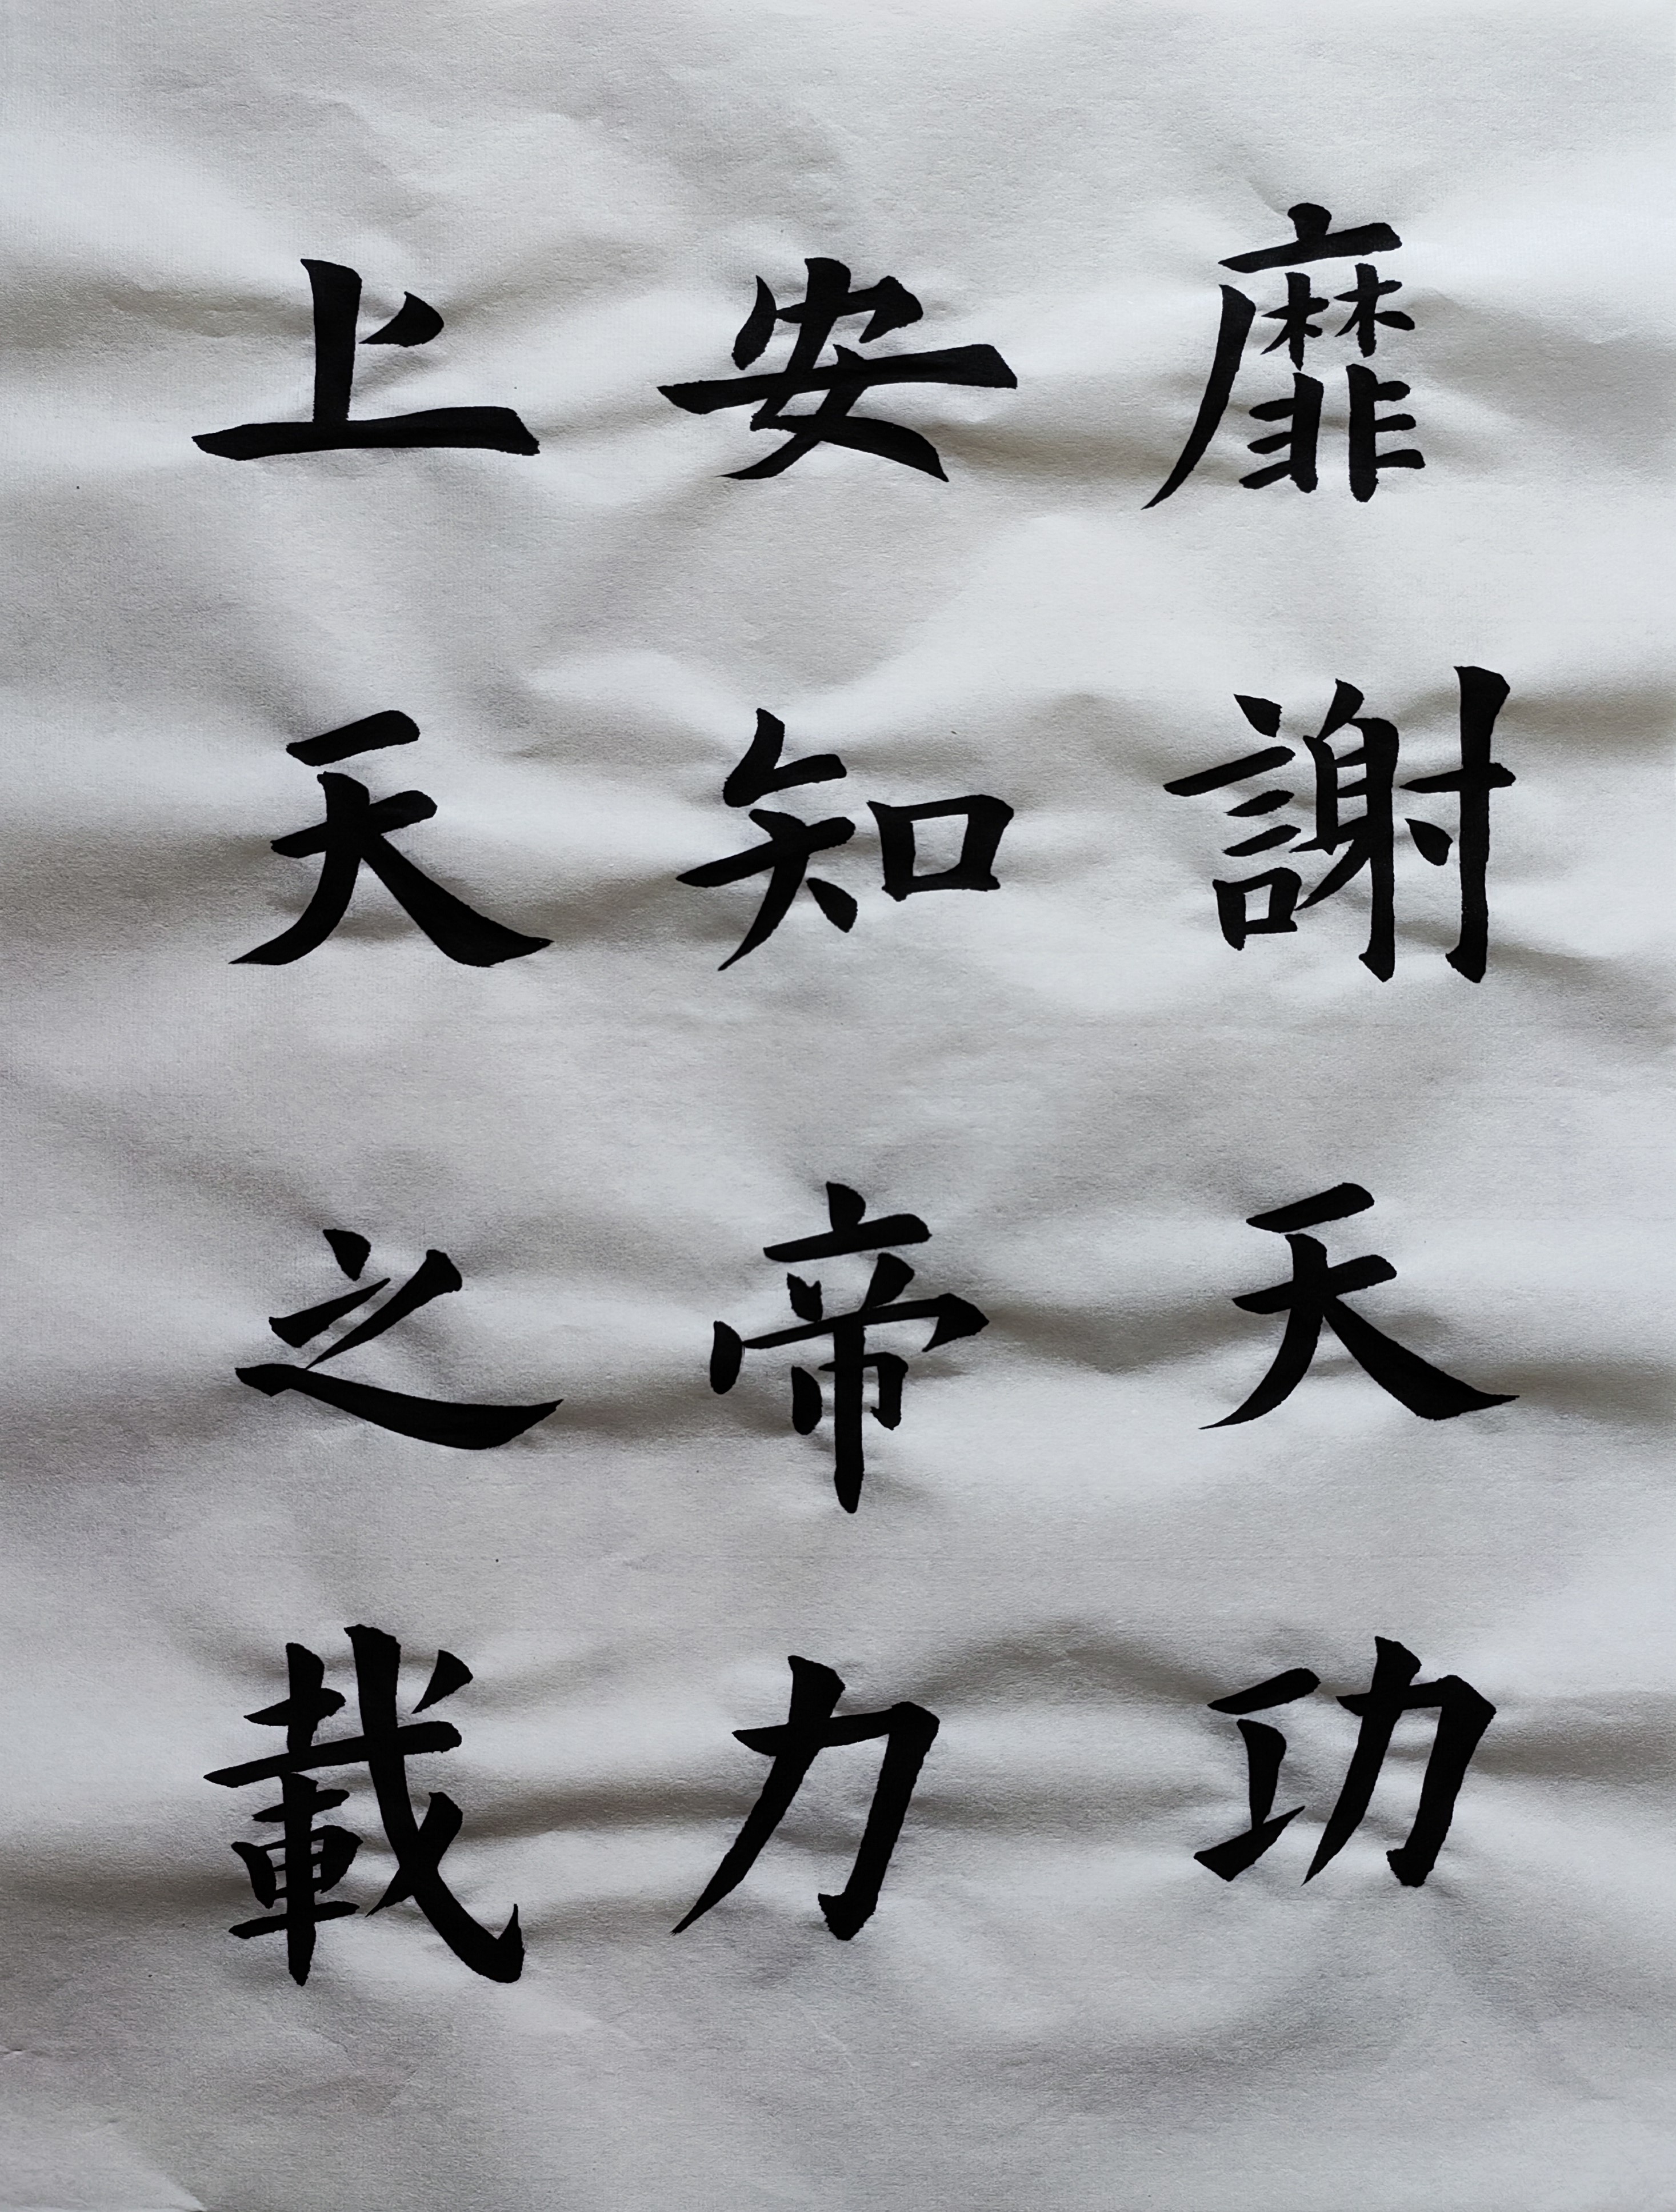 靡謝天功
安知帝力
上天之載